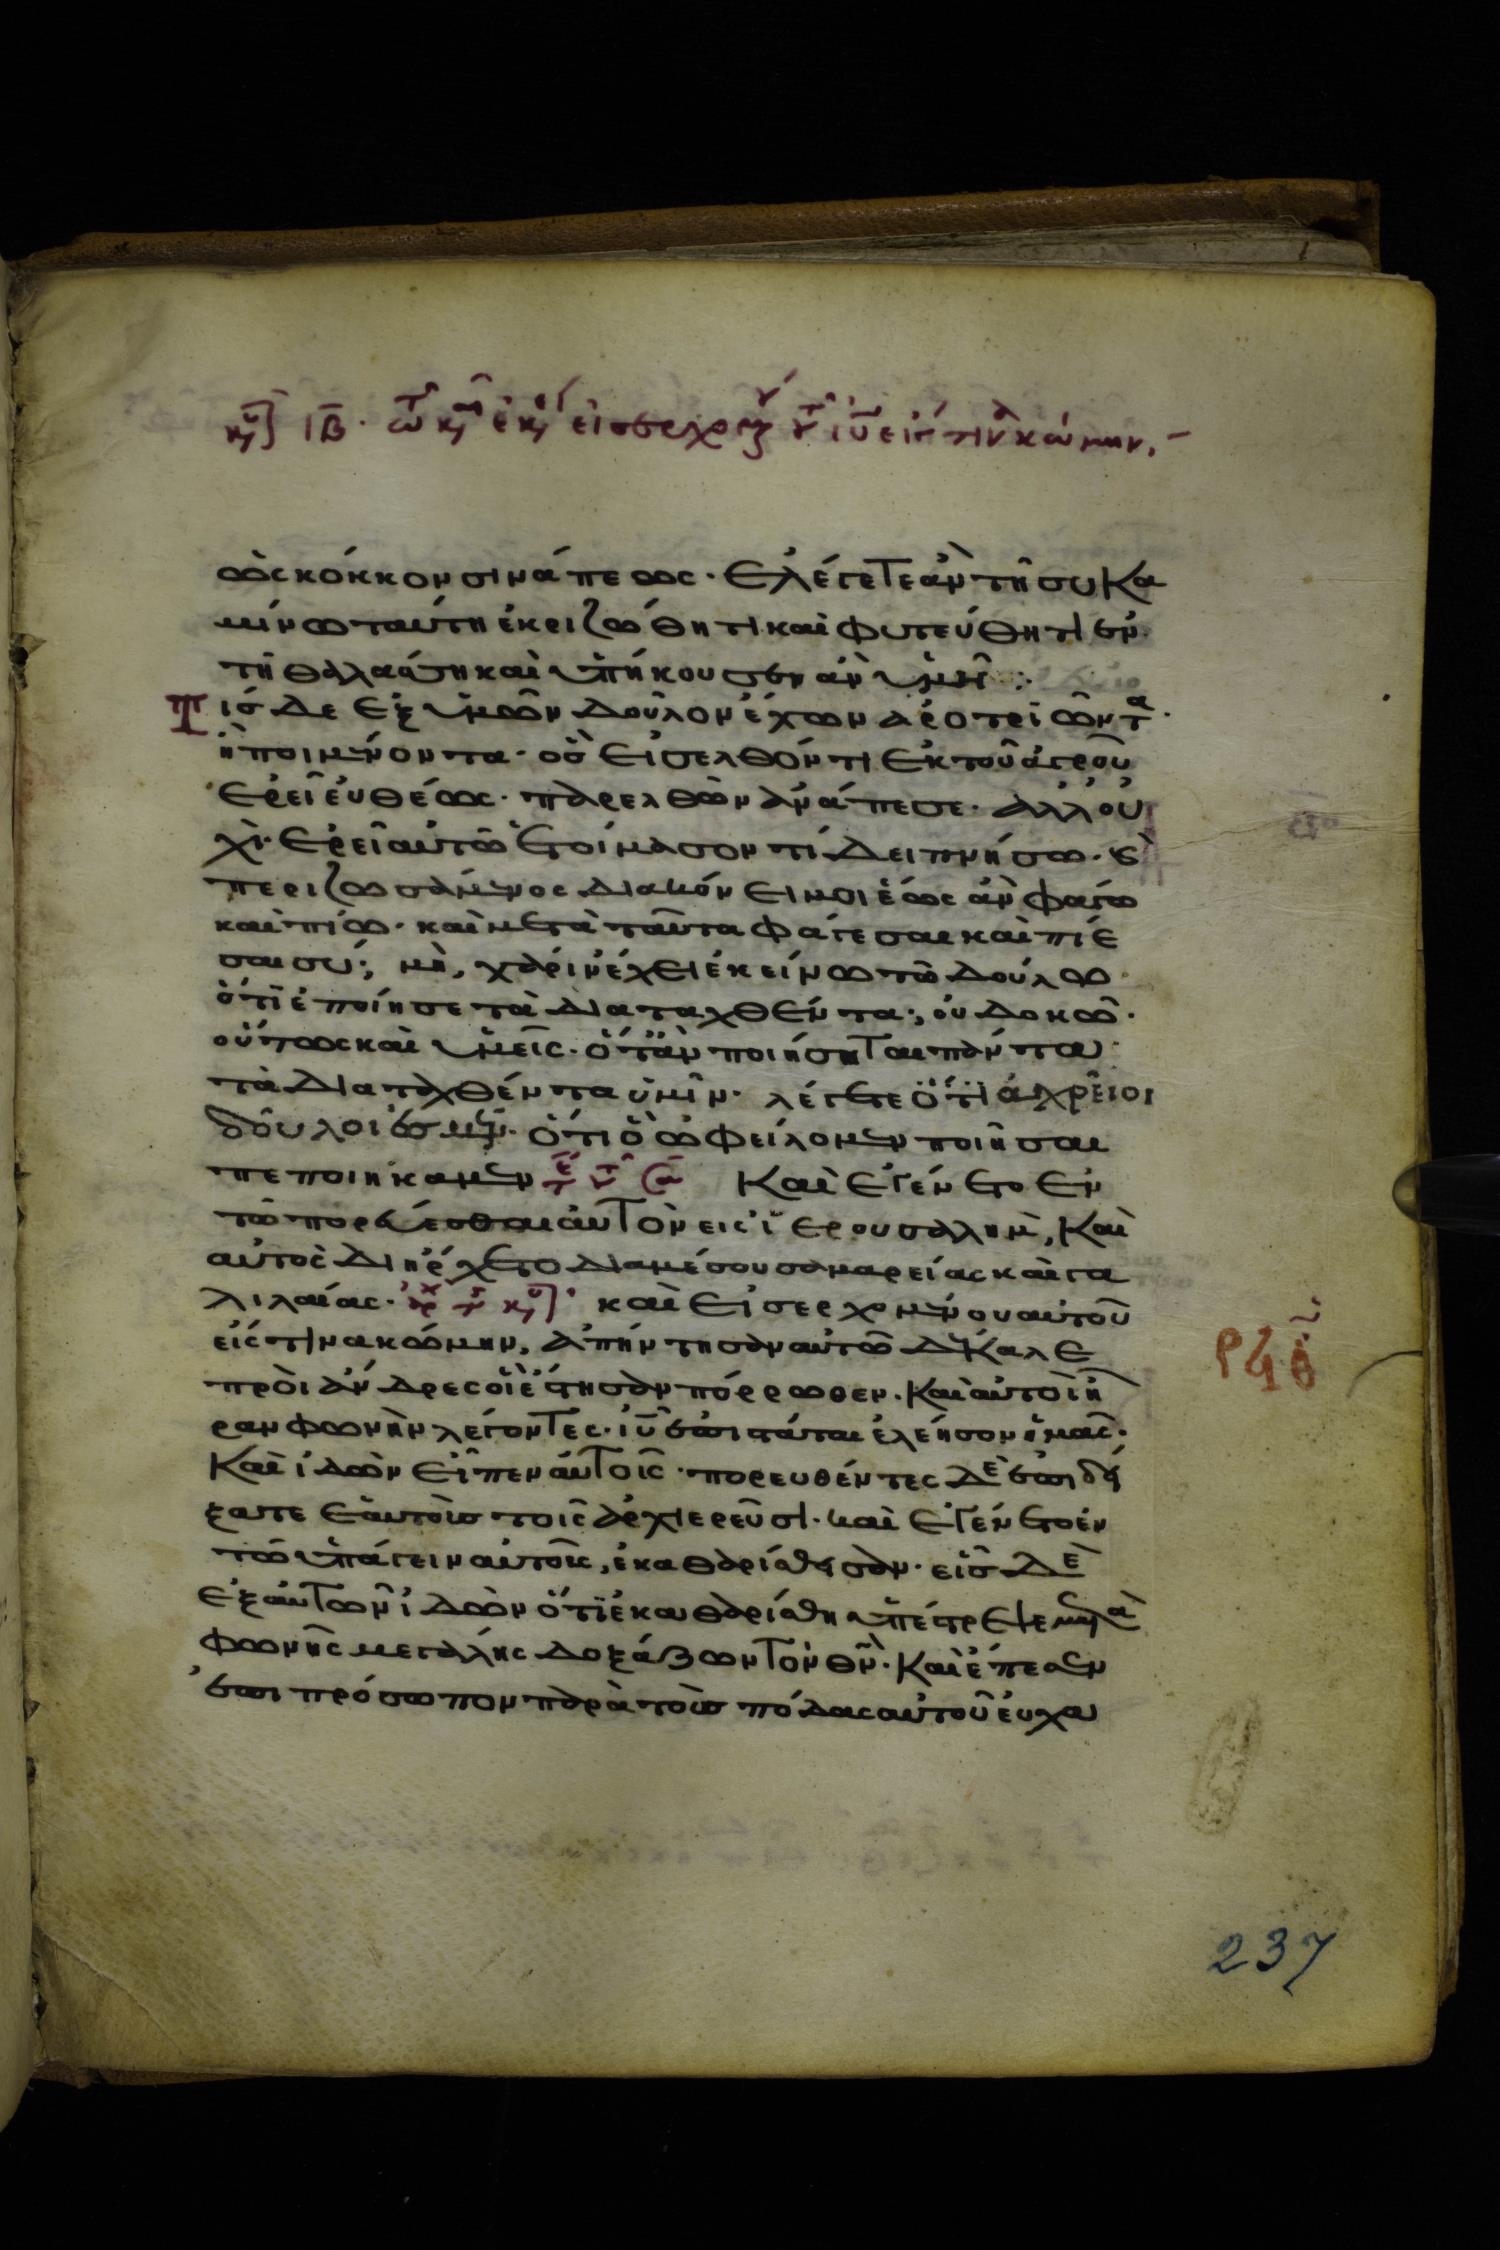 κυ ιβ. τω και εκει εισερχομ του ιυ εις τινα κώμην.
ὡς κόκκον σινάπεως· ἐλέγετε ἂν τῇ συκα
μίνω ταύτη ἐκριζώθητι καὶ φυτεύθητι ἐν
τῇ θαλάσση καὶ ὑπήκουσεν ἂν ὑμῖν :
Τίς δὲ ἐξ ὑμῶν δοῦλον ἔχων ἀροτριῶντα
ἢ ποιμένοντα· ὃς εἰσελθόντι ἐκ τοῦ ἀγροῦ
ἐρεῖ ἐυθέως· παρελθὼν ἀνάπεσε· ἀλλ' οὐ
χὶ· ἐρεῖ αὐτῶ ἑτοίμασον τί δειπνήσω· κὶ
περιζωσάμενος διακόνει μοι ἕως ἂν φάγω
καὶ πίω· καὶ μετὰ ταῦτα φάγεσαι καὶ πίε
σαι σύ; μὴ, χάριν ἔχει ἐκείνω τῶ δούλω
ὅτι ἐποίησε τὰ διαταχθέντα; οὐ δοκῶ·
οὕτως καὶ ὑμεῖς· ὅταν ποιήσηται πάντα
τὰ διαταχθέντα ὑμῖν· λέγετε ὅτι ἀχρεῖοι
δοῦλοι ἐσμέν· ὅτι ὃ ὠφείλομεν ποιῆσαι
πεποιήκαμεν Καὶ ἐγένετο ἐν
τῶ πορεύεσθαι αὐτὸν εἰς ἱερουσαλημ, καὶ
αὐτὸς διήρχετο διαμέσου σαμαρείας καὶ γα
λιλαίας. καὶ εἰσερχομένου αὐτοῦ
εἴς τινα κώμην, ἀπήντησαν αὐτῶ δέκα λε
προὶ ἄνδρες οἳ ἔστησαν πόρρωθεν. καὶ αὐτοὶ ἦ
ραν φωνὴν λέγοντες· ἰῦ ἐπιστάται ἐλέησον ἡμᾶς·
Καὶ ἰδὼν εἶπεν αὐτοῖς· πορευθέντες δὲ ἐπιδεί
ξατε ἑαυτοὺς τοῖς ἀρχιερεῦσι· καὶ ἐγένετο ἐν
τῶ ὑπάγειν αὐτοὺς, ἐκαθαρίσθησαν· εἷς δὲ
ἐξ αὐτῶν ἰδὼν ὅτι ἐκαθαρίσθη ὑπέστρεψε μετὰ
φωνῆς μεγάλης δοξάζων τὸν θν̅· καὶ ἔπεσεν
ἐπι πρόσωπον παρὰ τοὺς πόδας αὐτοῦ ἐυχα
237